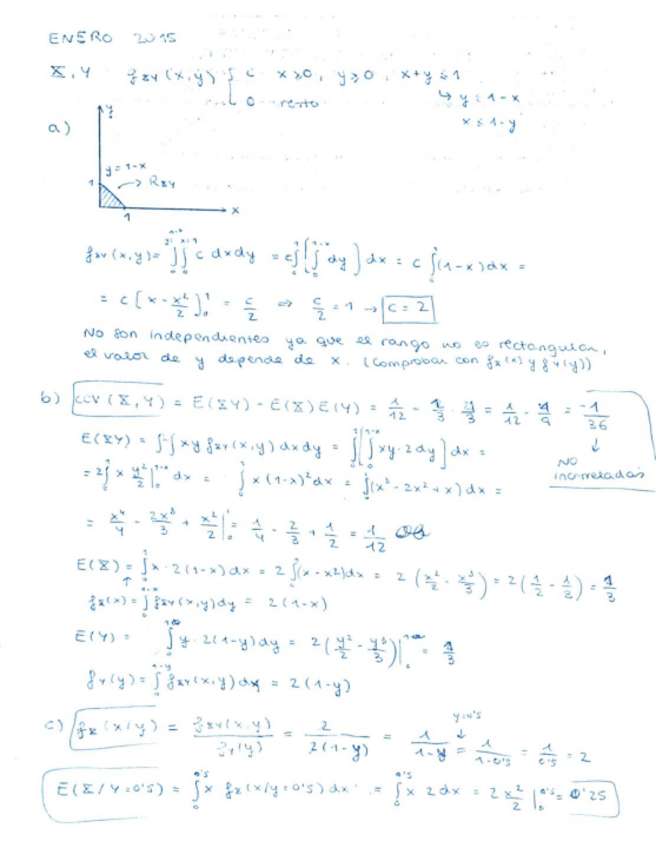 ENERO 2015
X, Y  f_XY(x,y) { c  x≥0, y≥0, x+y≤1
0  resto
↳ y = 1-x
x ≤ 1-y
a)
y
y = 1-x
1 → R_XY
1
x
f_XY(x,y) = ∫∫ c dxdy = c∫₀¹[∫₀^(1-x) dy] dx = c ∫₀¹(1-x)dx =
= c [x - x²/2]₀¹ = c/2 ⇒ c/2 = 1 → c = 2
No son independientes ya que el rango no es rectangular,
el valor de y depende de x. (comprobar con f_X(x) y f_Y(y))
b) cov(X,Y) = E(XY) - E(X)E(Y) = 1/12 - 1/3 · 1/3 = 1/12 - 1/9 = -1/36
↓
NO
incorreladas
E(XY) = ∫∫ xy f_XY(x,y) dxdy = ∫₀¹[∫₀^(1-x) xy·2dy] dx =
= 2∫₀¹ x y²/2 |₀^(1-x) dx = ∫₀¹ x(1-x)² dx = ∫₀¹(x³ - 2x² + x) dx =
= x⁴/4 - 2x³/3 + x²/2 |₀¹ = 1/4 - 2/3 + 1/2 = 1/12
E(X) = ∫₀¹ x · 2(1-x) dx = 2∫₀¹(x - x²)dx = 2(x²/2 - x³/3) = 2(1/2 - 1/3) = 1/3
↑
f_X(x) = ∫₀^(1-x) f_XY(x,y)dy = 2(1-x)
E(Y) = ∫₀¹ y · 2(1-y)dy = 2(y²/2 - y³/3)|₀¹ = 1/3
f_Y(y) = ∫₀^(1-y) f_XY(x,y)dx = 2(1-y)
c) f_X(x/y) = f_XY(x,y)/f_Y(y) = 2/2(1-y) = 1/1-y = 1/1-0'5 = 1/0'5 = 2
y=0'5
↓
E(X/Y=0'5) = ∫₀^0'5 x f_X(x/y=0'5) dx = ∫₀^0'5 x 2dx = 2 x²/2 |₀^0'5 = 0'25